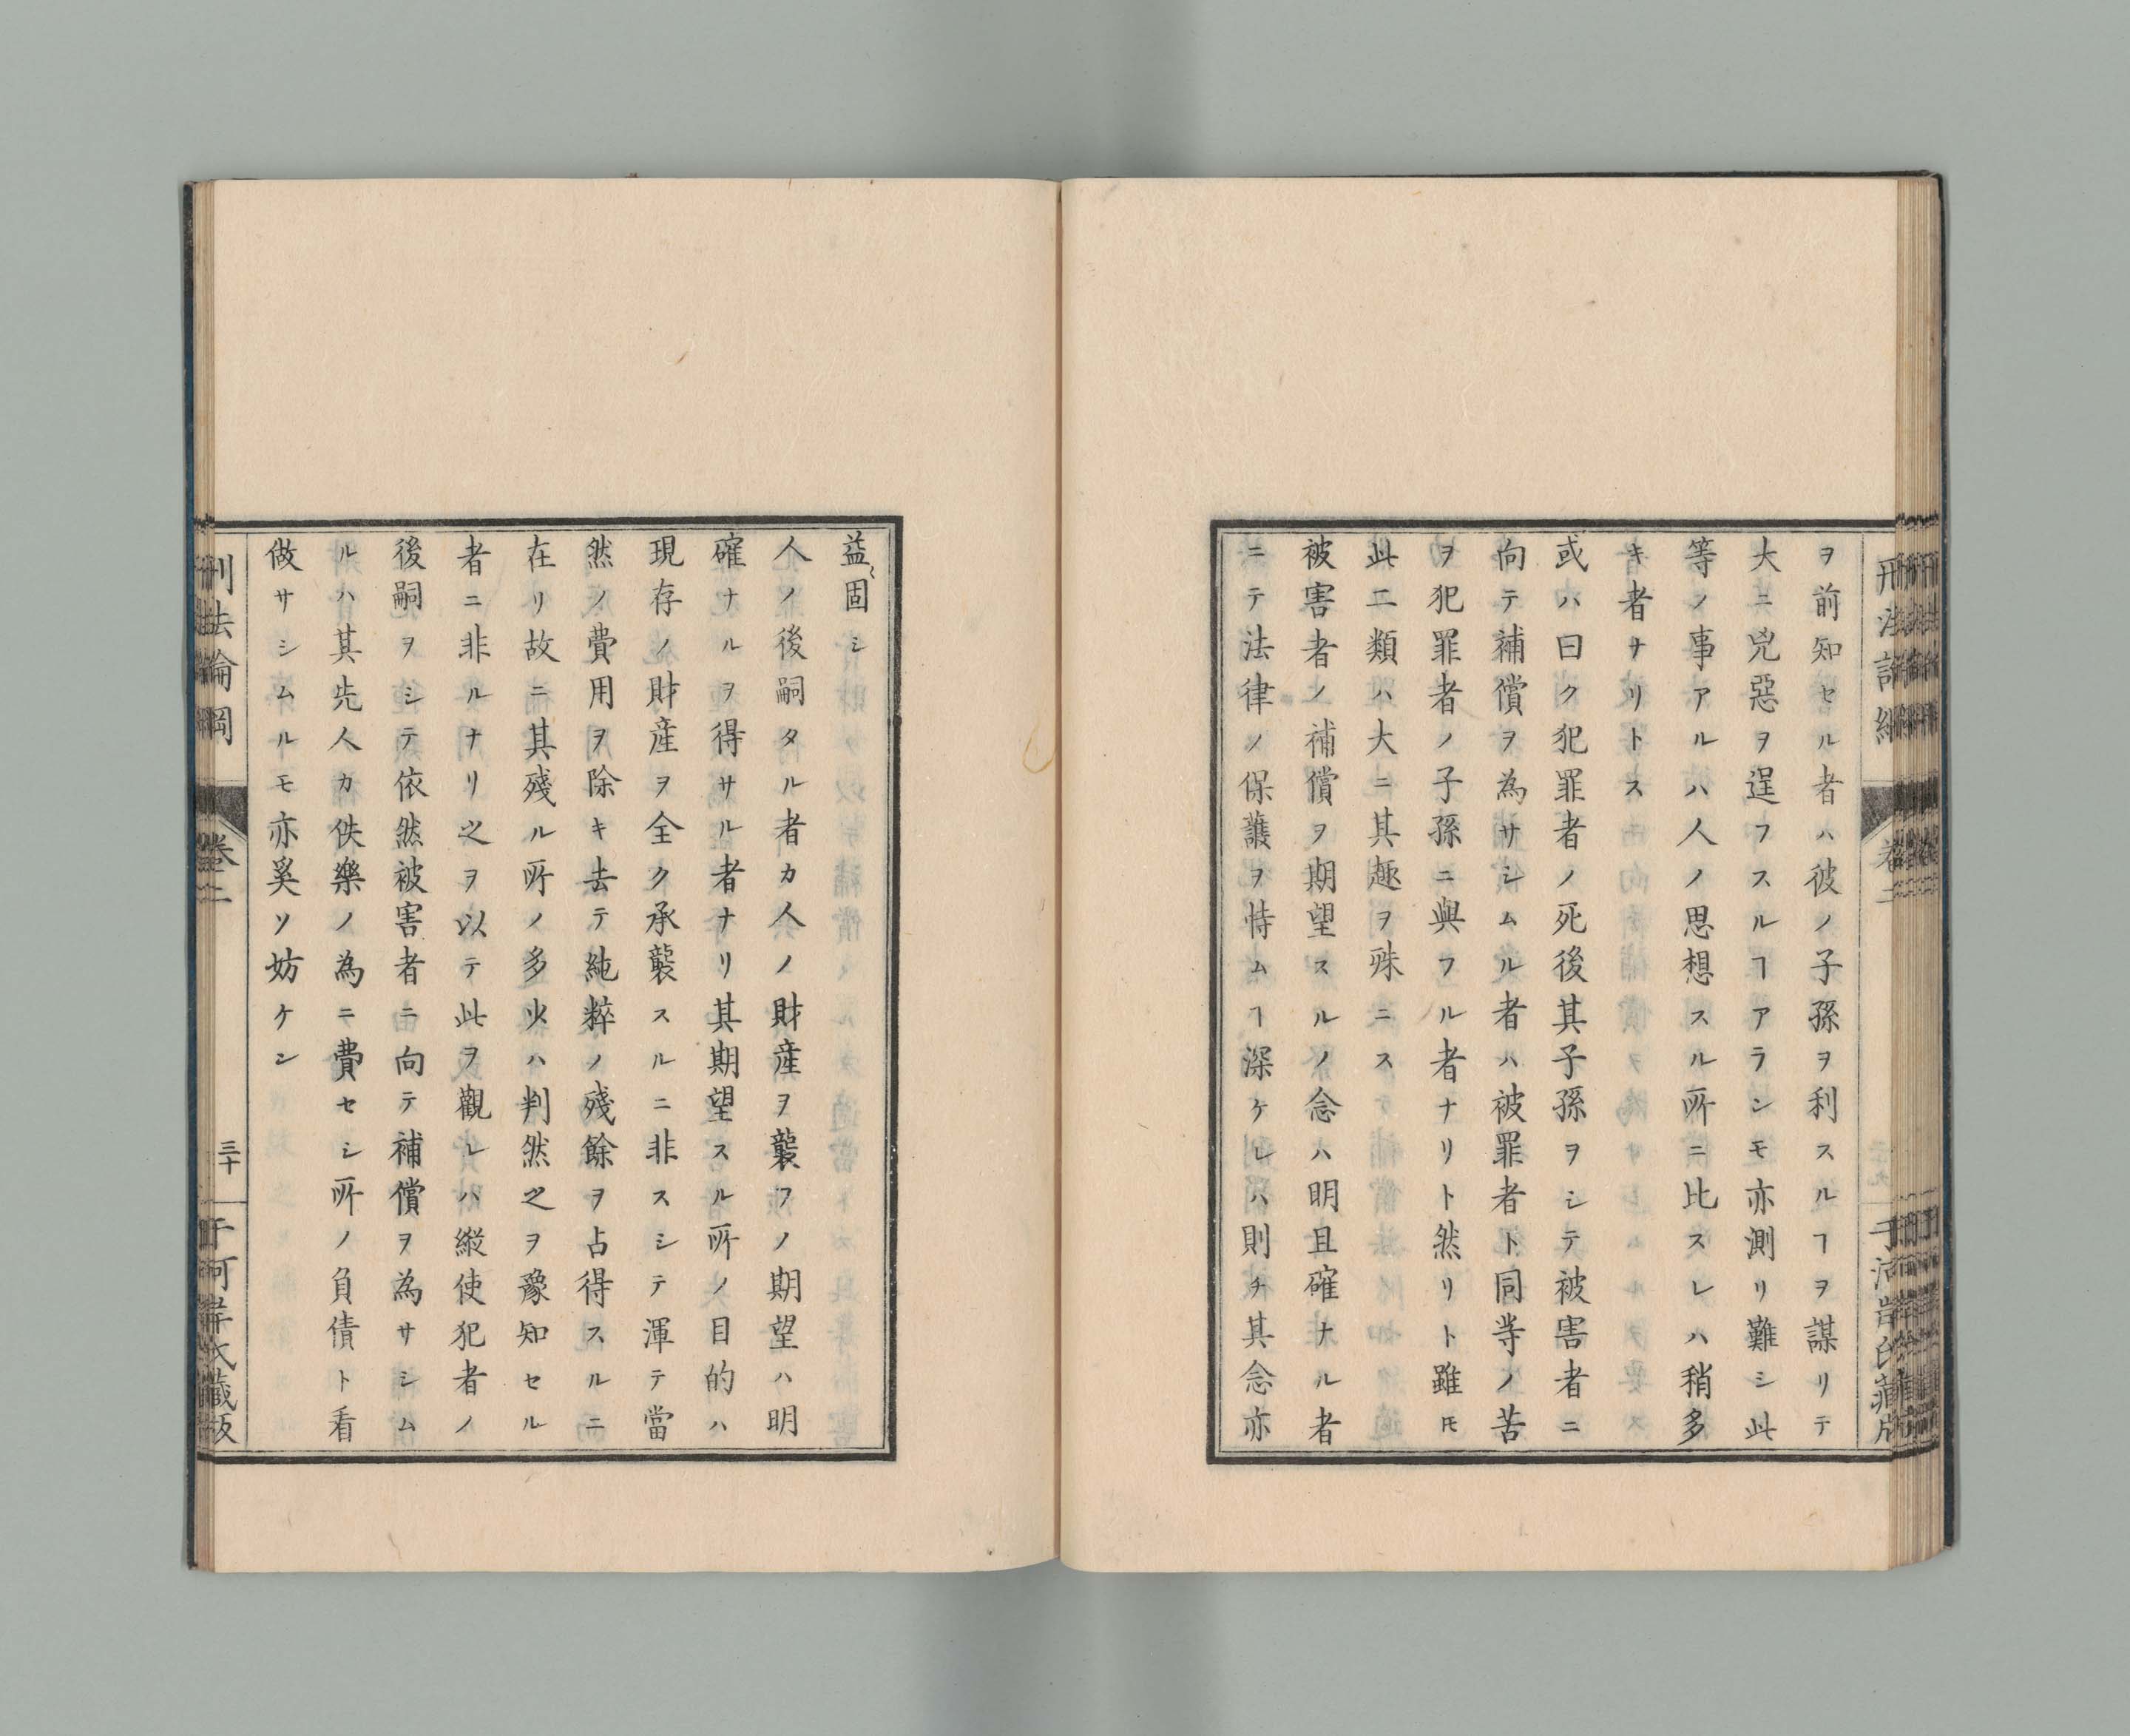 ヲ前知セル者ハ彼ノ子孫ヲ利スルヿヲ謀リテ
大ニ兇惡ヲ逞フスルヿアランモ亦測リ難シ此
等ノ事アルハ人ノ思想スル所ニ比スレハ稍多
キ者ナリトス
或ハ曰ク犯罪者ノ死後其子孫ヲシテ被害者ニ
向テ補償ヲ為サシムル者ハ被罪者ト同等ノ苦
ヲ犯罪者ノ子孫ニ與フル者ナリト然リト雖𪜈
此二類ハ大ニ其趣ヲ殊ニス
被害者ノ補償ヲ期望スルノ念ハ明且確ナル者
ニテ法律ノ保護ヲ恃ムヿ深ケレハ則チ其念亦
益〻固シ
人ノ後嗣タル者カ人ノ財産ヲ襲フノ期望ハ明
確ナルヲ得サル者ナリ其期望スル所ノ目的ハ
現存ノ財産ヲ全ク承襲スルニ非スシテ渾テ當
然ノ費用ヲ除キ去テ純粹ノ殘餘ヲ占得スルニ
在リ故ニ其殘ル所ノ多少ハ判然之ヲ豫知セル
者ニ非ルナリ之ヲ以テ此ヲ觀レハ縱使犯者ノ
後嗣ヲシテ依然被害者ニ向テ補償ヲ為サシム
ルハ其先人カ佚樂ノ為ニ費セシ所ノ負債ト看
做サシムルモ亦奚ソ妨ケン
刑法論綱
卷二
三十
于河岸氏藏版